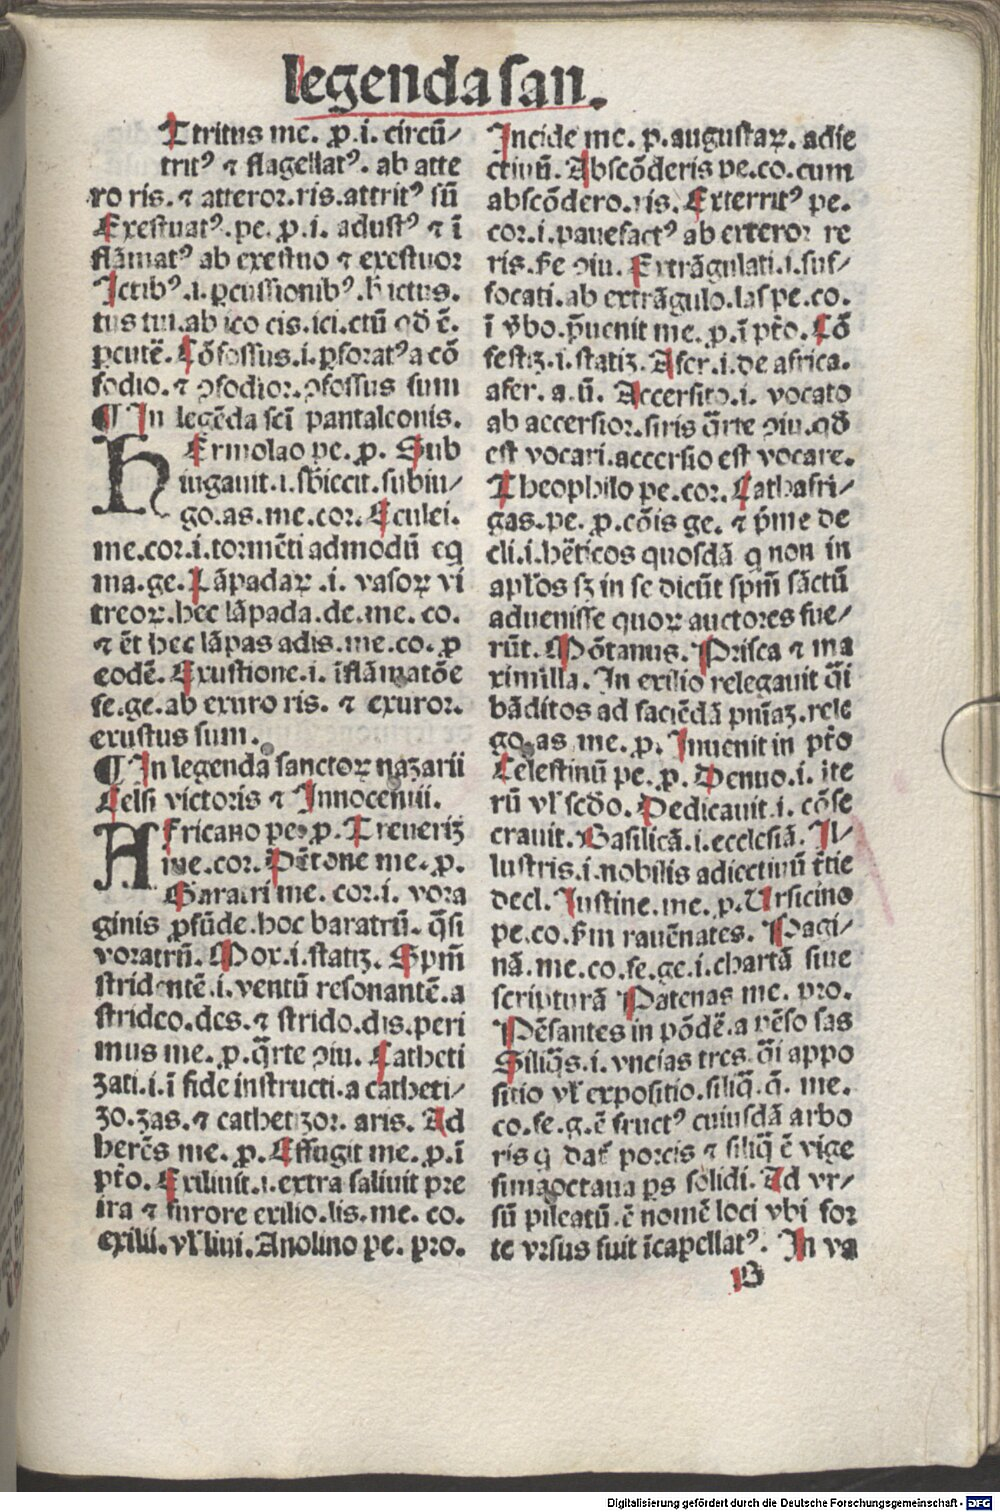 legenda san.
Ttritus me. ꝓ.i. circū/
tritꝰ ⁊ flagellatꝰ. ab atte
ro ris. ⁊ atteror.ris.attritꝰ sū
Exestuatꝰ.pe. ꝓ.i. adustꝰ ⁊ ī
flāmatꝰ ab exestuo ⁊ exestuor
Ictibꝰ.i.ꝑcussionibꝰ.h ictus.
tus tui.ab ico cis.ici.ctū qđ ē.
ꝑcutē. Cōfossus.i.ꝑforatꝰ a cō
fodio.⁊ ꝯfodior.ꝯfossus sum
¶ In legēda scī pantaleonis.
HErmolao pe. ꝓ. Sub
iugauit.i.sbiecit.subiu/
go.as.me.cor. Eculei.
me.cor.i.tormēti admodū eq
ma.ge. Lāpadaꝝ .i. vasoꝝ vi
treoꝝ.hec lāpada.de.me. co.
⁊ ēt hec lāpas adis.me.co. ꝓ
eodē. Exustione.i. īflāmatōe
se.ge.ab exuro ris. ⁊ exuror.
exustus sum.
¶ In legenda sanctoꝝ nazarii
Celsi victoris ⁊ Innocentii.
AFricano pe. ꝓ. Treueriꝫ
me.cor. Pētone me. ꝓ.
Baratri me. cor.i. vora
ginis ꝓfūde.hoc baratrū. q̄si
voratrū. Mox.i.statiꝫ. Spm̄
stridentē.i.ventū resonantē.a
strideo.des.⁊ strido.dis.peri
mus me. ꝓ.q̄rte ꝯiu. Catheti
zati.i.ī fide instructi.a catheti/
zo.zas.⁊ cathetizor. aris. Ad
herēs me. ꝓ. Effugit me. ꝓ.ī
pt̄o. Exiliuit.i.extra saliuit pre
ira ⁊ furore exilio.lis.me. co.
exilii.vl̄ liui. Anolino pe. pro.
Incide me. p.augustaꝝ. adie
ctiuū. Abscōderis pe.co.cum
abscōdero.ris. Exterritꝰ pe.
cor.i.pauefactꝰ ab exteror re
ris. ꝯiu. Extrāgulati.i.suf/
focati.ab extrāgulo.las pe.co.
ī v̄bo.p̄uenit me. ꝓ.ī pt̄o. Cō
festiꝫ.i.statiꝫ. Afer.i.de africa.
afer. a.ū. Accersito.i. vocato
ab accersior.siris q̄rte ꝯiu.qđ
est vocari.accersio est vocare.
Theophilo pe.cor. Cathafri/
gas.pe. ꝓ.cōis ge. ⁊ p̄me de
cli.i.hēticos quosdā q non in
apl'os sꝫ in se dicūt spm̄ sāctū
aduenisse quoꝝ auctores fue/
rūt. Mōtanus. Prisca ⁊ ma
ximilla. In exilio relegauit q̄i
bāditos ad faciēdā pnīaꝫ.rele
go.as me. ꝓ. Inuenit in pt̄o
Celestinū pe. ꝓ. Denuo.i. ite
rū vl̄ scd̄o. Dedicauit.i. cōse
crauit. Basilicā.i.ecclesiā. Il/
lustris.i.nobilis adiectiuū t̄tie
decl. Iustine.me. p. Ursicino
pe.co.s̄m rauēnates. Pagi/
nā.me.co.se.ge.i.chartā siue
scripturā Patenas me. pro.
Pēsantes in pōdē.a pēso sas
Siliq̄s.i. vncias tres. q̄i appo
sitio vl̄ expositio.siliq̄.q̄. me.
co.se.g.ē fructꝰ cuiusdā arbo
ris q dat̄ porcis ⁊ siliq̄ ē vige
simaoctaua ꝑs solidi. Ad vr/
sū pileatū.ē nomē loci vbi for
te vrsus fuit īcapellatꝰ. In va
B
Digitalisierung gefördert durch die Deutsche Forschungsgemeinschaft - DFG